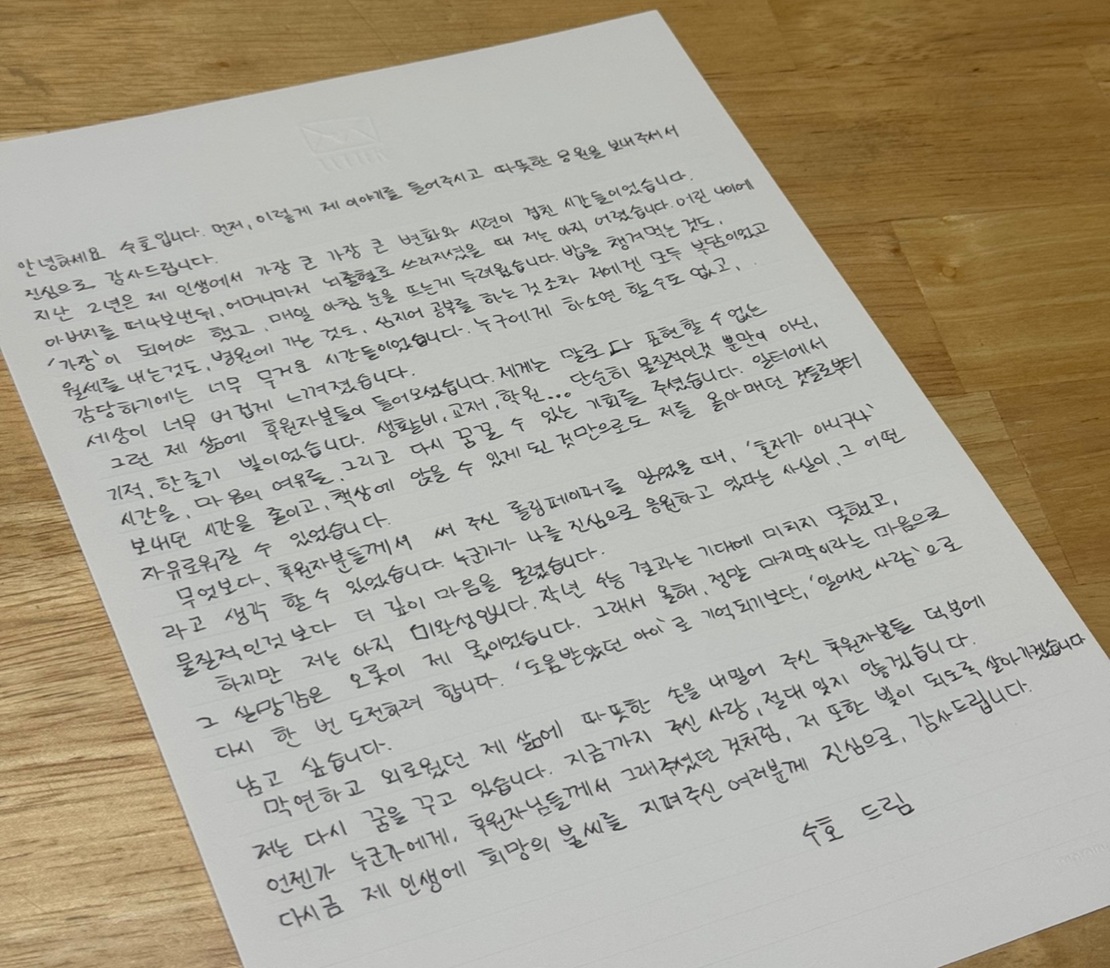 안녕하세요 수호입니다. 먼저, 이렇게 제 이야기를 들어주시고 따뜻한 응원을 보내주셔서
진심으로 감사드립니다.
지난 2년은 제 인생에서 가장 큰 가장 큰 변화와 시련이 겹친 시간들이었습니다.
아버지를 떠나보낸뒤, 어머니마저 뇌출혈로 쓰러지셨을 때 저는 아직 어렸습니다. 어린 나이에
'가장'이 되어야 했고, 매일 아침 눈을 뜨는게 두려웠습니다. 밥을 챙겨먹는 것도,
월세를 내는것도, 병원에 가는 것도, 심지어 공부를 하는 것조차 저에겐 모두 부담이었고
감당하기에는 너무 무거운 시간들이었습니다. 누구에게 하소연 할 수도 없고,
세상이 너무 버겁게 느껴졌습니다.
그런 제 삶에 후원자분들이 들어오셨습니다. 제게는 말로 다 표현할 수 없는
기적, 한줄기 빛이었습니다. 생활비, 교재, 학원... 단순히 물질적인것 뿐만이 아닌,
시간을, 마음의 여유를, 그리고 다시 꿈꿀 수 있는 기회를 주셨습니다. 일터에서
보내던 시간을 줄이고, 책상에 앉을 수 있게 된 것만으로도 저를 옭아매던 것들로부터
자유로워질 수 있었습니다.
무엇보다, 후원자분들께서 써 주신 롤링페이퍼를 읽었을 때, '혼자가 아니구나'
라고 생각 할 수 있었습니다. 누군가가 나를 진심으로 응원하고 있다는 사실이, 그 어떤
물질적인것 보다 더 깊이 마음을 울렸습니다.
하지만 저는 아직 미완성입니다. 작년 수능 결과는 기대에 미치지 못했고,
그 실망감은 오롯이 제 몫이었습니다. 그래서 올해, 정말 마지막이라는 마음으로
다시 한 번 도전하려 합니다. '도움받았던 아이'로 기억되기보다, '일어선 사람'으로
남고 싶습니다.
막연하고 외로웠던 제 삶에 따뜻한 손을 내밀어 주신 후원자분들 덕분에
저는 다시 꿈을 꾸고 있습니다. 지금까지 주신 사랑, 절대 잊지 않겠습니다.
언젠가 누군가에게, 후원자님들께서 그래주셨던 것처럼, 저 또한 빛이 되도록 살아가겠습니다
다시금 제 인생에 희망의 불씨를 지펴주신 여러분께 진심으로, 감사드립니다.
수호 드림